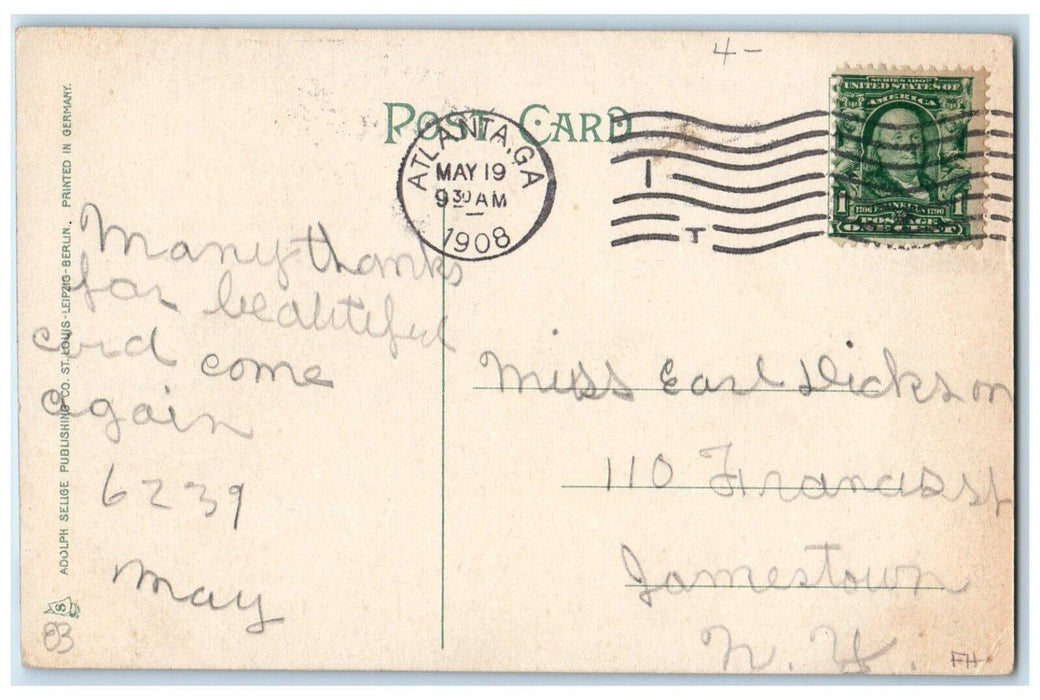 4-
POST CARD
ATLANTA, GA
MAY 19
9 30 AM
1908
1
T
SERIES 1902
UNITED STATES OF
AMERICA
1 1706 FRANKLIN 1790 1
POSTAGE
ONE CENT
ADOLPH SELIGE PUBLISHING CO. ST. LOUIS-LEIPZIG-BERLIN. PRINTED IN GERMANY.
S
83
Many thanks
for beautiful
card come
again
6239
May
Miss Earl Dickson
110 Francis st
Jamestown
N. Y.
FH